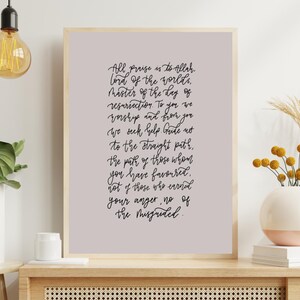 All praise is to Allah,
Lord of the worlds,
Master of the day of
resurrection. To you we
worship and from you
we seek help. Guide us
to the straight path,
the path of those whom
you have favoured,
not of those who earned
your anger, no of
the misguided.